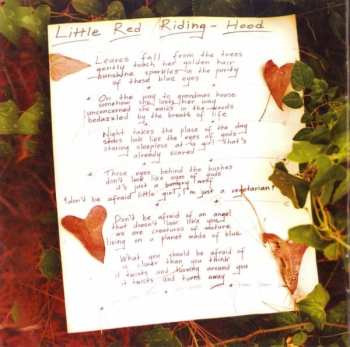 Little Red Riding-Hood
Leaves fall from the trees
gently touch her golden hair
sunshine sparkles in the purity
of these blue eyes
On the way to grandmas house
somehow she lost her way
unconcerned she walks in the woods
bedazzled by the breath of life
Night takes the place of the day
stars look like the eyes of gods
staring sleepless at a girl that's
already scared
Those eyes behind the bushes
don't look like eyes of gods
it's just a hungry wolf
"don't be afraid little girl, I'm just a vegetarian"
Don't be afraid of an angel
that doesn't look like you
we are creatures of nature
living on a planet made of blue
What you should be afraid of
is closer than you think
it twists and turning around you
it twists and turns away